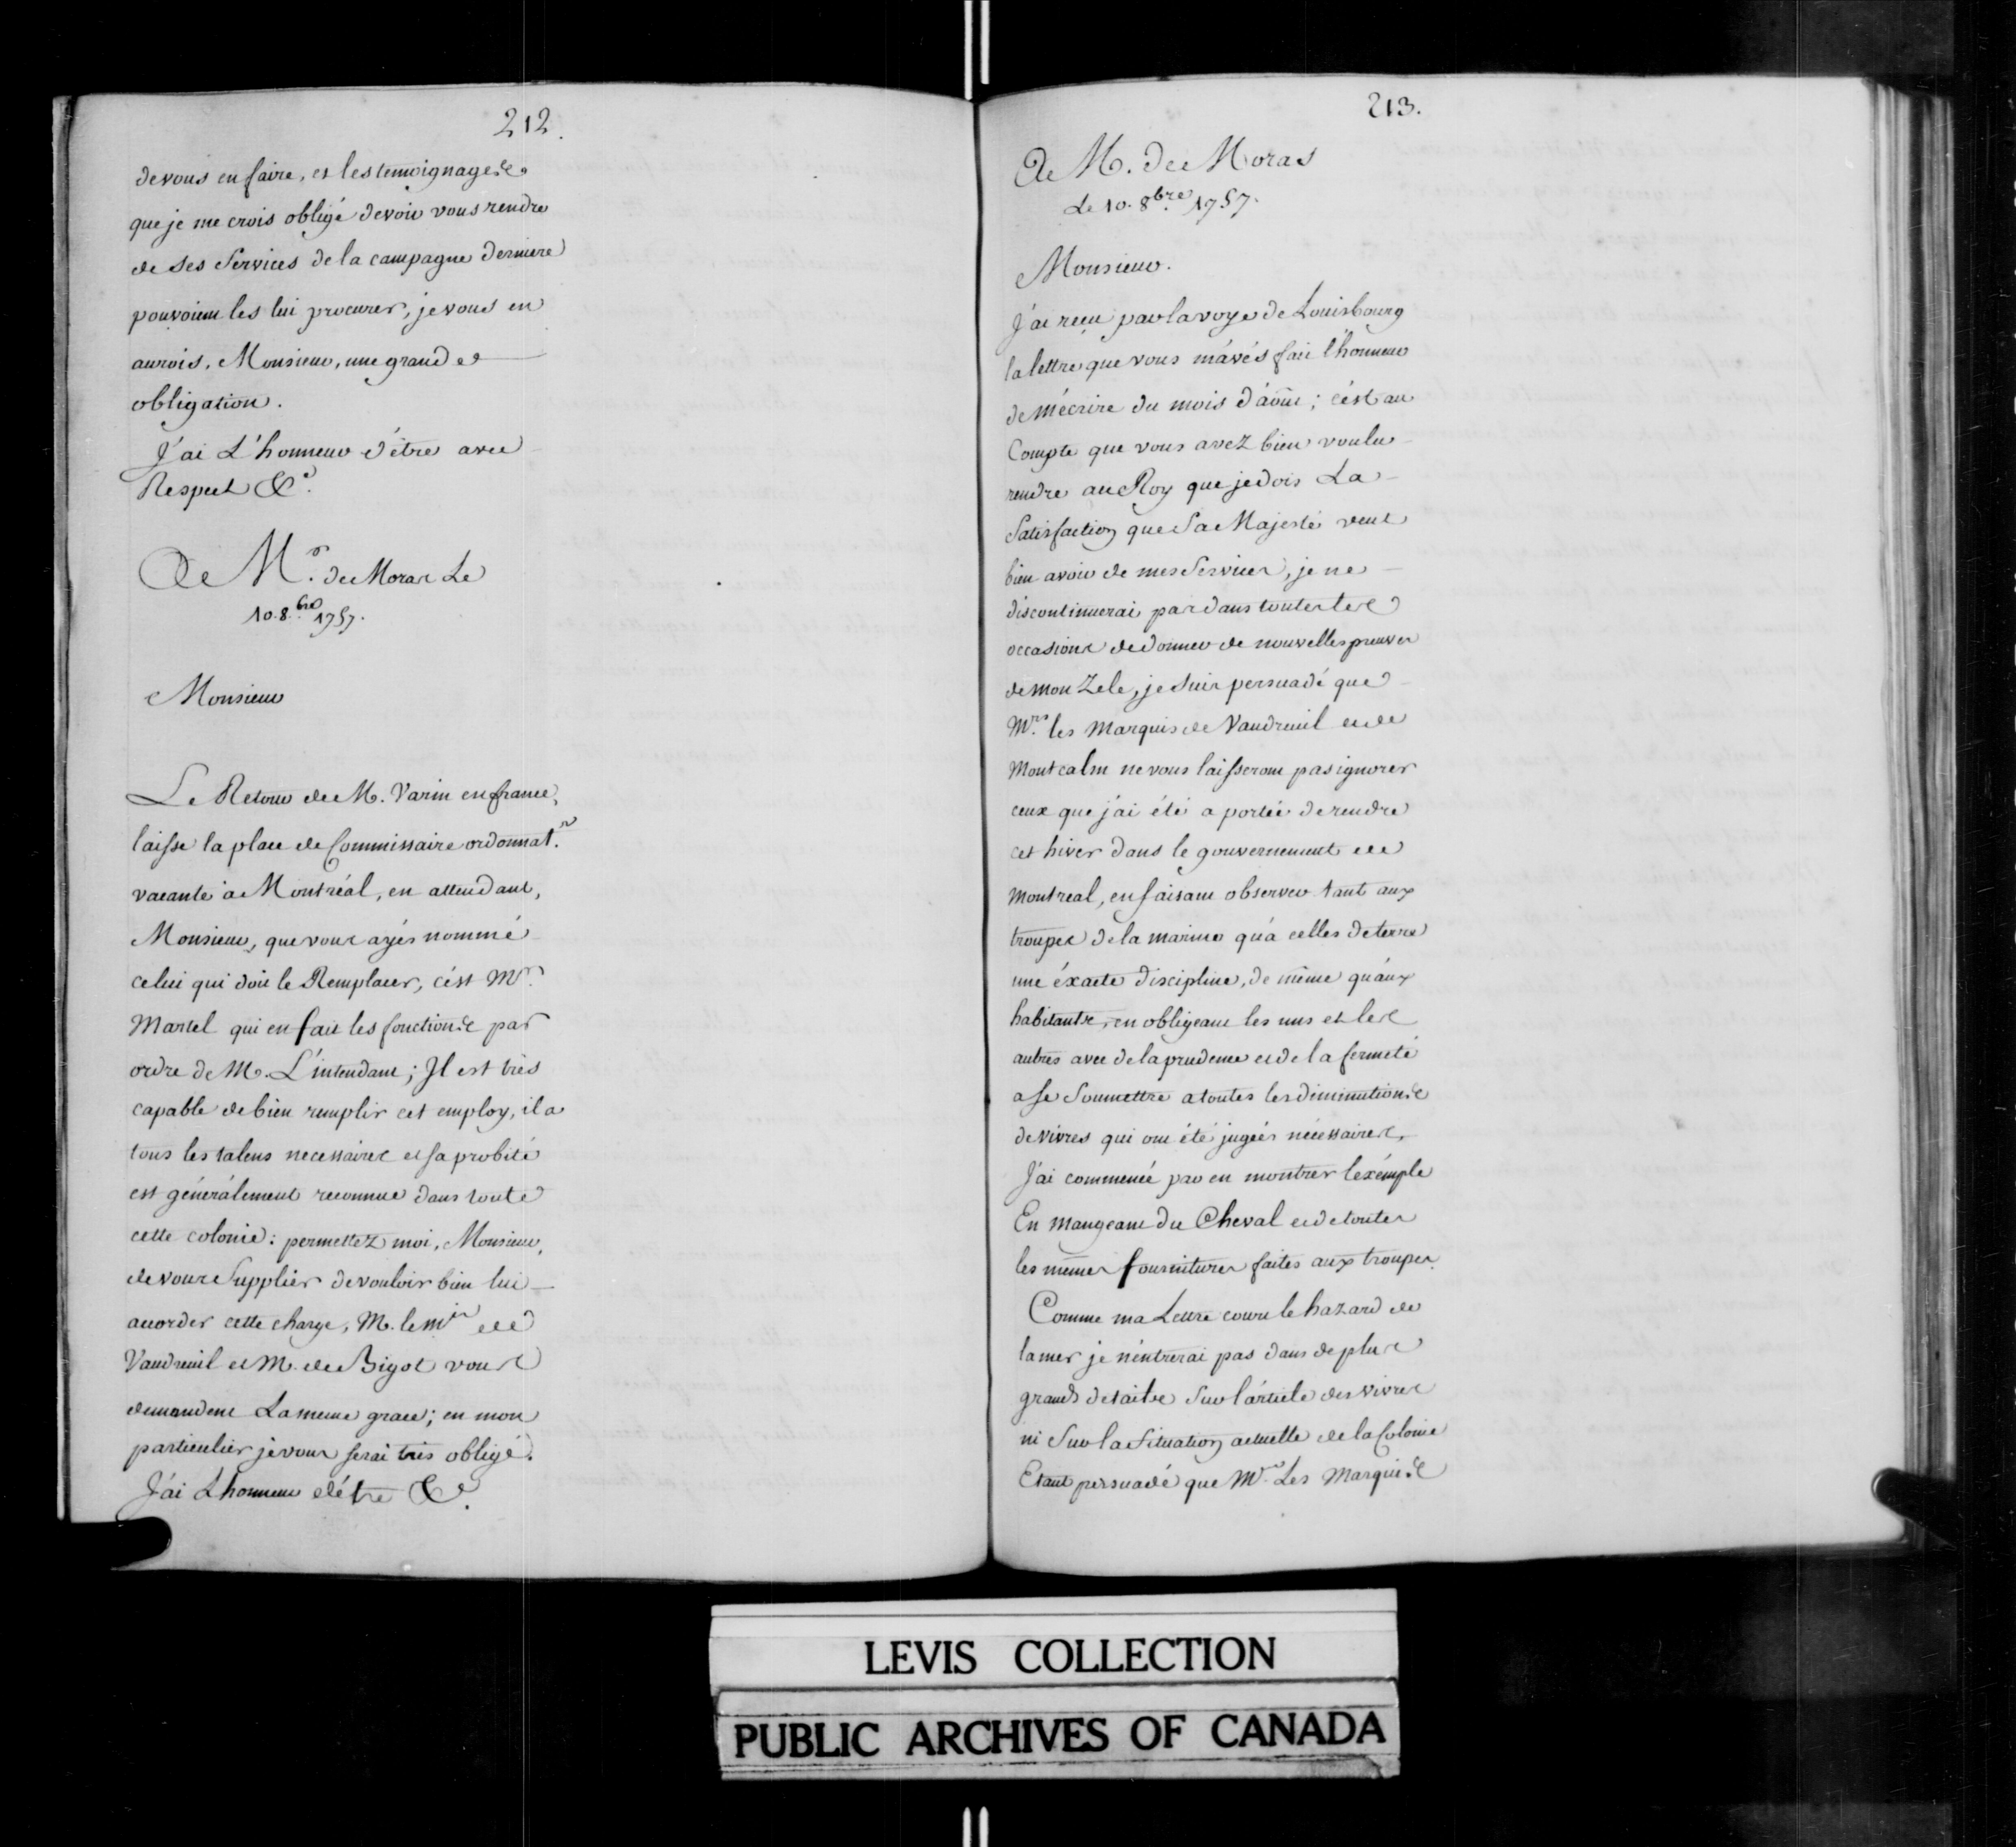 212.
de vous en faire, et les temoignages
que je me crois obligé devoir vous rendre
de ses Services de la campagne derniere
pouvoient les lui procurer, je vous en
aurois, Monsieur, une grande
obligation.
J'ai L'honneur d'être avec
Respect &c.
A Mr. de Moras Le
10. 8.bre 1757.
Monsieur
Le Retour de M. Varin en france,
laisse la place de Commissaire ordonnat.r
vacante à Montréal, en attendant,
Monsieur, que vous ayés nommé
celui qui doit le Remplacer, c'est Mr.
Martel qui en fait les fonctions par
ordre de M. L'intendant; Il est très
capable de bien remplir cet employ, il a
tous les talens necessaires et sa probité
est généralement reconnue dans toute
cette colonie: permettez moi, Monsieur,
de vous Supplier de vouloir bien lui
accorder cette charge, M. le mis de
Vaudreuil et M. de Bigot vous
demandent La meme grace; en mon
particulier je vous serai très obligé.
J'ai L'honneur d'être &c.
213.
A M. de Moras
Le 10. 8bre 1757.
Monsieur.
J'ai reçu par la voye de Louisbourg
la lettre que vous m'avés fait l'honneur
de m'écrire du mois d'août; c'est au
Compte que vous avez bien voulu
rendre au Roy que je dois La
Satisfaction que Sa Majesté veut
bien avoir de mes Services, je ne
discontinuerai pas dans toutes les
occasions de donner de nouvelles preuves
de mon Zele, je suis persuadé que
Mrs. les Marquis de Vaudreuil et de
Montcalm ne vous laisseront pas ignorer
ceux que j'ai été a portée de rendre
cet hiver dans le gouvernement de
Montreal, en faisant observer tant aux
troupes de la marine qu'a celles de terre
une éxacte discipline, de même qu'aux
habitants, en obligeant les uns et les
autres avec de la prudence et de la fermeté
a se Soumettre a toutes les diminutions
de vivres qui ont été jugées nécessaires,
J'ai commencé par en montrer l'exémple
En mangeant du Cheval et de toutes
les memes fournitures faites aux troupes.
Comme ma Lettre court le hazard de
la mer je n'entrerai pas dans de plus
grands details Sur l'article des vivres
ni Sur la Situation actuelle de la Colonie
Etant persuadé que Mrs. Les Marquis
LEVIS COLLECTION
PUBLIC ARCHIVES OF CANADA